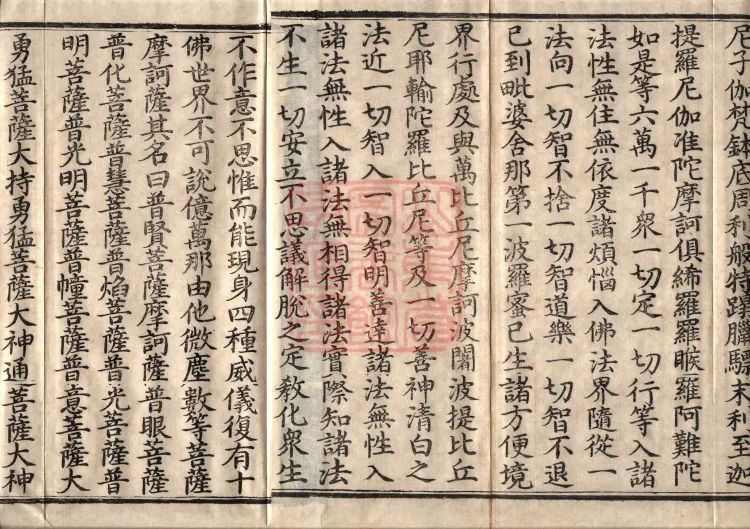 尼子伽梵鉢底周利般特蹉臘驃末利至迦
提羅尼伽准陀摩訶俱絺羅羅睺羅阿難陀
如是等六萬一千衆一切定一切行等入諸
法性無住無依度諸煩惱入佛法界隨從一
法向一切智不捨一切智道樂一切智不退
已到毗婆舍那第一波羅蜜已生諸方便境
界行處及與萬比丘尼摩訶波闍波提比丘
尼耶輸陀羅比丘尼等及一切善神清白之
法近一切智入一切智明善達諸法無性入
諸法無性入諸法無相得諸法實際知諸法
不生一切安立不思議解脫之定教化衆生
不作意不思惟而能現身四種威儀復有十
佛世界不可說億萬那由他微塵數等菩薩
摩訶薩其名曰普賢菩薩摩訶薩普眼菩薩
普化菩薩普慧菩薩普焰菩薩普光菩薩普
明菩薩普光明菩薩普幢菩薩普意菩薩大
勇猛菩薩大持勇猛菩薩大神通菩薩大神